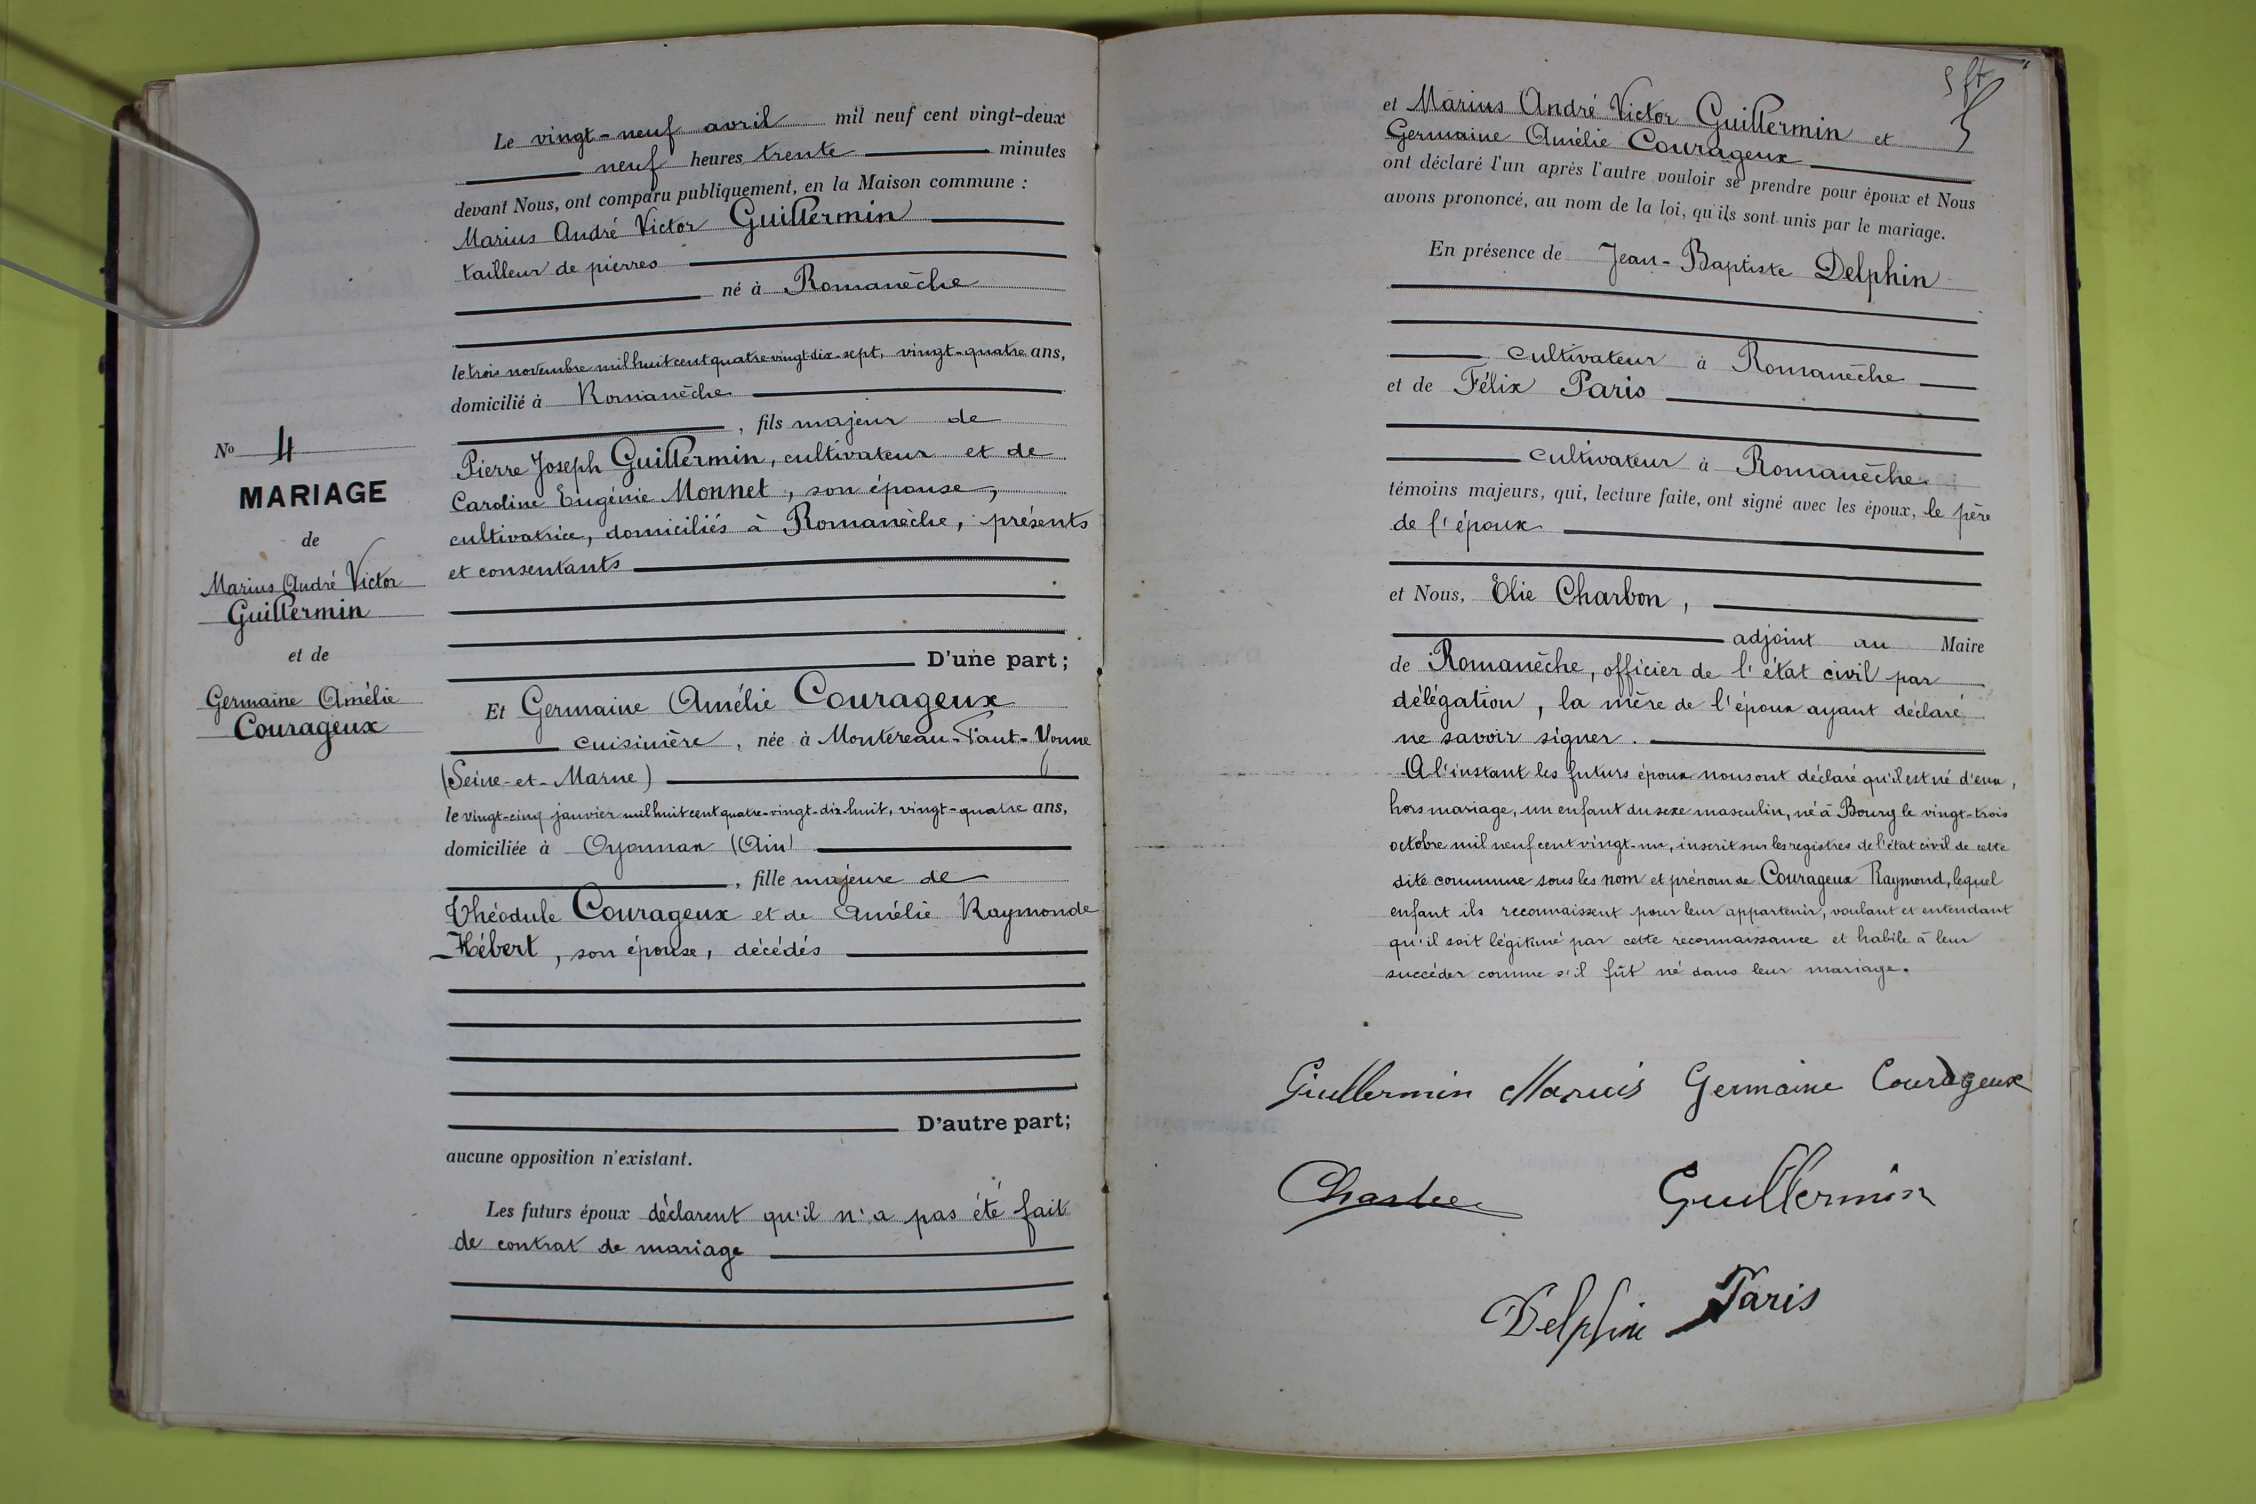 Le vingt-neuf avril mil neuf cent vingt-deux
neuf heures trente minutes
devant Nous, ont comparu publiquement, en la Maison commune :
Marius André Victor Guillermin
tailleur de pierres
né à Romanèche
le trois novembre mil huit cent quatre-vingt-dix-sept, vingt-quatre ans,
domicilié à Romanèche
, fils majeur de
Pierre Joseph Guillermin, cultivateur et de
Caroline Eugénie Monnet, son épouse,
cultivatrice, domiciliés à Romanèche, présents
et consentants
D'une part;
Et Germaine Amélie Courageux
cuisinière, née à Montereau-Faut-Yonne
(Seine-et-Marne)
le vingt-cinq janvier mil huit cent quatre-vingt-dix-huit, vingt-quatre ans,
domiciliée à Oyonnax (Ain)
, fille majeure de
Théodule Courageux et de Amélie Raymonde
Hébert, son épouse, décédés
D'autre part;
aucune opposition n'existant.
Les futurs époux déclarent qu'il n'a pas été fait
de contrat de mariage
No 4
MARIAGE
de
Marius André Victor
Guillermin
et de
Germaine Amélie
Courageux
et Marius André Victor Guillermin et
Germaine Amélie Courageux
ont déclaré l'un après l'autre vouloir se prendre pour époux et Nous
avons prononcé, au nom de la loi, qu'ils sont unis par le mariage.
En présence de Jean-Baptiste Delphin
cultivateur à Romanèche
et de Félix Paris
cultivateur à Romanèche
témoins majeurs, qui, lecture faite, ont signé avec les époux, le père
de l'époux
et Nous, Elie Charbon,
adjoint au Maire
de Romanèche, officier de l'état civil par
délégation, la mère de l'époux ayant déclaré
ne savoir signer.
A l'instant les futurs époux nous ont déclaré qu'il est né d'eux,
hors mariage, un enfant du sexe masculin, né à Bourg le vingt-trois
octobre mil neuf cent vingt-un, inscrit sur les registres de l'état civil de cette
dite commune sous les nom et prénom de Courageux Raymond, lequel
enfant ils reconnaissent pour leur appartenir, voulant et entendant
qu'il soit légitimé par cette reconnaissance et habile à leur
succéder comme s'il fût né dans leur mariage.
Guillermin Marius Germaine Courageux
Guillermin
Delphin Paris